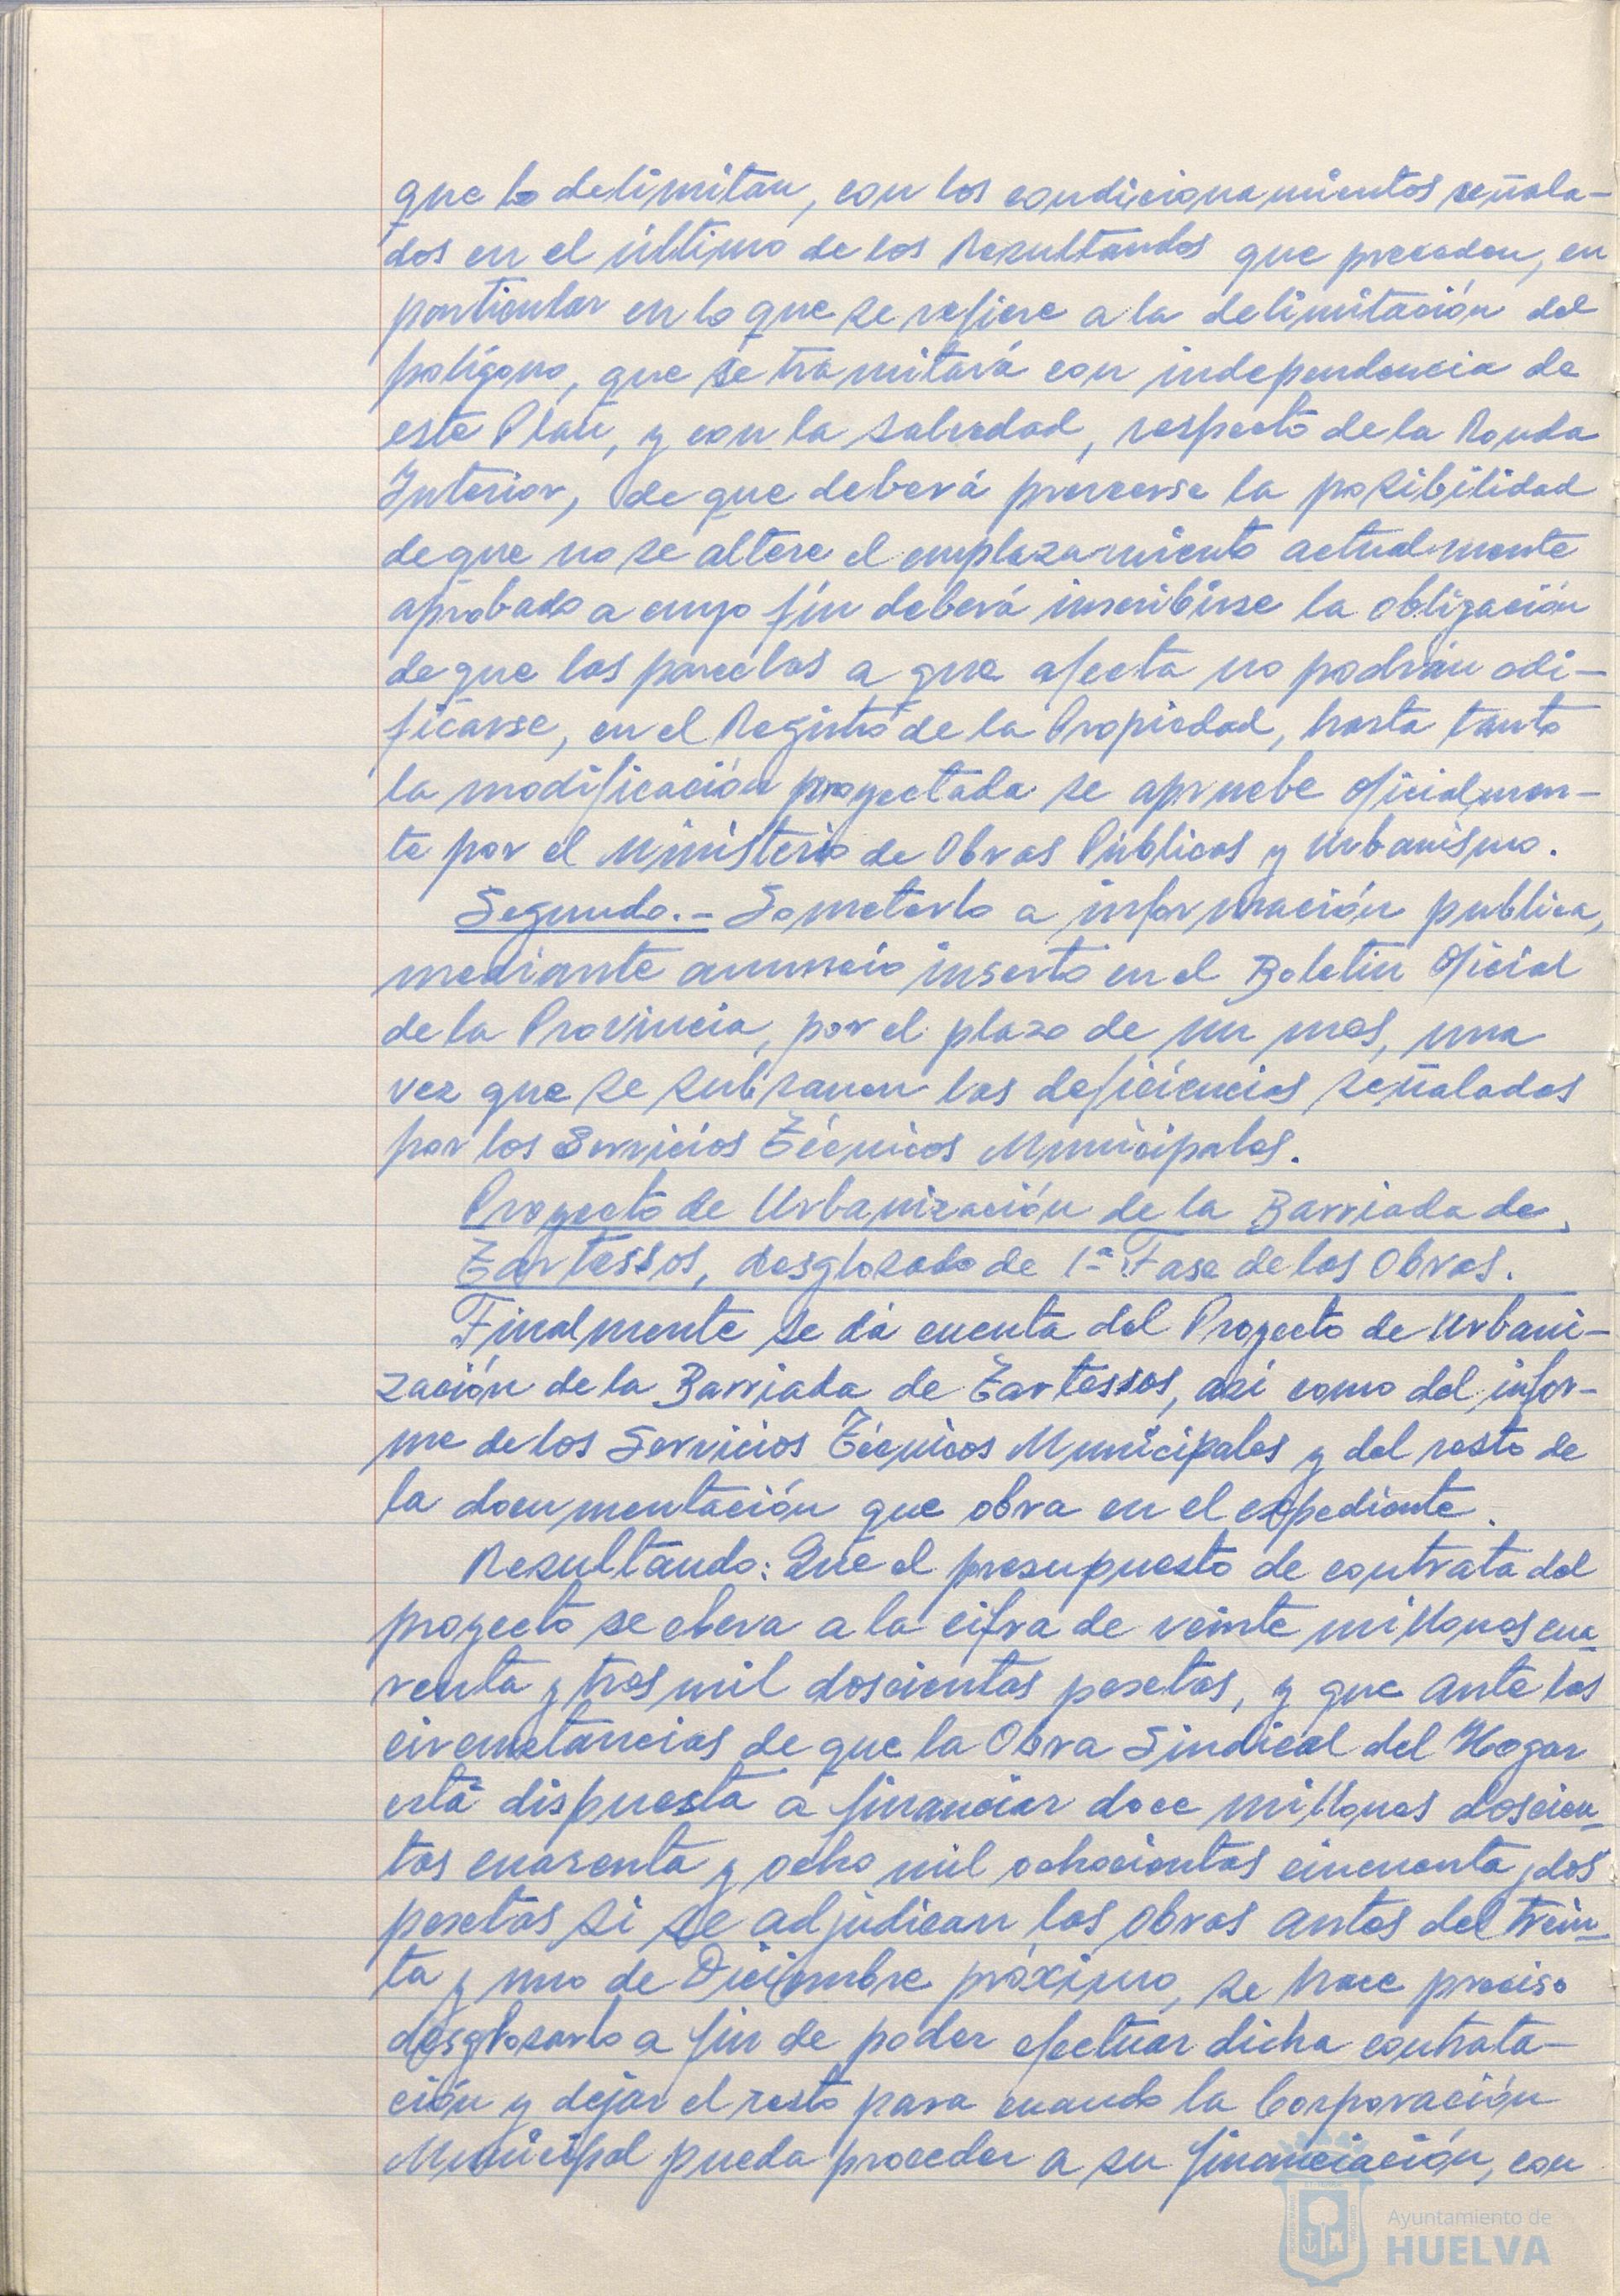 que lo delimitan, con los condicionamientos señala-
dos en el último de los Resultandos que preceden, en
particular en lo que se refiere a la delimitación del
polígono, que se tramitará con independencia de
este Plan, y con la salvedad, respecto de la Ronda
Interior, de que deberá preverse la posibilidad
de que no se altere el emplazamiento actualmente
aprobado a cuyo fín deberá inscribirse la obligación
de que las parcelas a que afecta no podrán edi-
ficarse, en el Registro de la Propiedad, hasta tanto
la modificación proyectada se apruebe oficialmen-
te por el Ministerio de Obras Públicas y Urbanismo.
Segundo.- Someterlo a información publica,
mediante anuncio inserto en el Boletin Oficial
de la Provincia, por el plazo de un mes, una
vez que se subsanen las deficiencias señaladas
por los Servicios Técnicos Municipales.
Proyecto de Urbanización de la Barriada de
Tartessos, desglosado de 1ª Fase de las Obras.
Finalmente se dá cuenta del Proyecto de Urbani-
zación de la Barriada de Tartessos, asi como del infor-
me de los Servicios Técnicos Municipales y del resto de
la documentación que obra en el expediente.
Resultando: Que el presupuesto de contrata del
proyecto se eleva a la cifra de veinte millones cua-
renta y tres mil doscientas pesetas, y que ante las
circunstancias de que la Obra Sindical del Hogar
está dispuesta a financiar doce millones doscien-
tas cuarenta y ocho mil ochocientas cincuenta y dos
pesetas si se adjudican las obras antes del trein-
ta y uno de Diciembre próximo, se hace preciso
desglosarlo a fin de poder efectuar dicha contrata-
ción y dejar el resto para cuando la Corporación
Municipal pueda proceder a su financiación, con
Ayuntamiento de
HUELVA